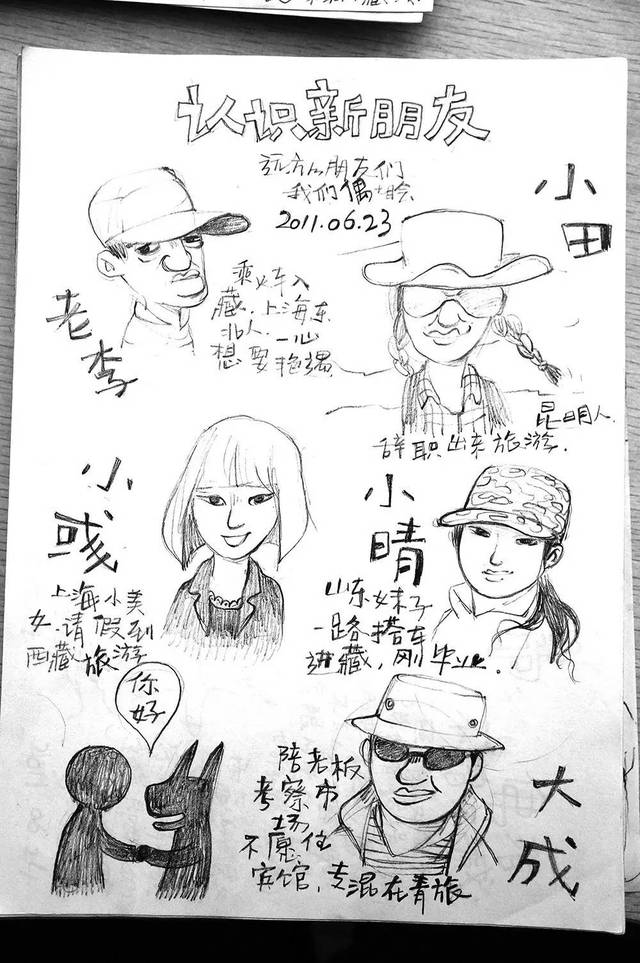 认识新朋友
远方的朋友们
我们偶
2011.06.23
小田
老李
乘火车入
藏.上海东
北人.一心
想要艳遇.
昆明人.
辞职出来旅游.
小彧
上海小美
女.请假到
西藏旅游
小晴
山东妹子
一路搭车
进藏,刚毕业.
你
好
陪老板
考察市
场
不愿住
宾馆,专混在青旅
大成